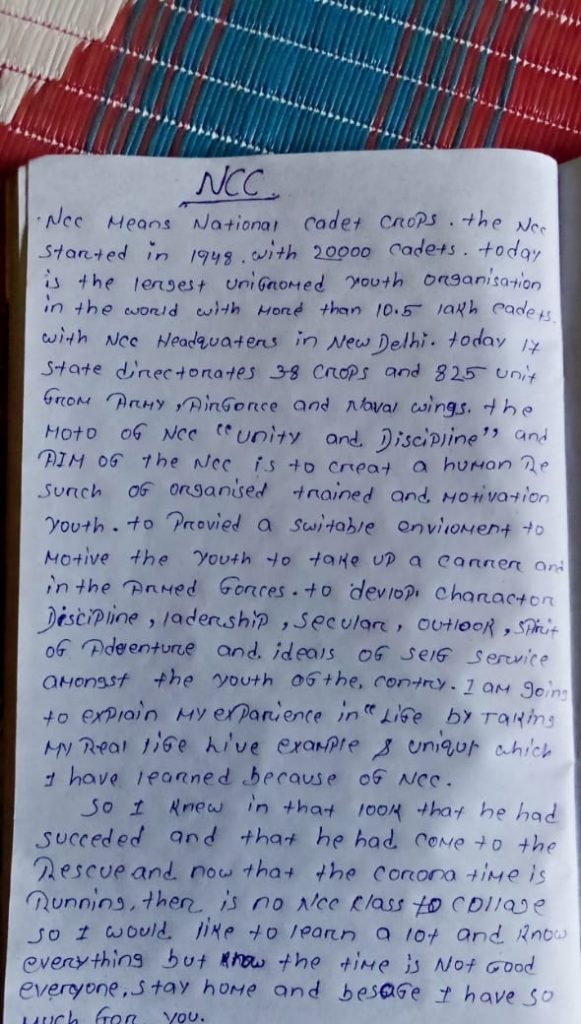 NCC.
Ncc Means National cadet crops. the Ncc
started in 1948. with 20000 cadets. today
is the lengest unifromed youth organisation
in the world with more than 10.5 lakh cadets.
with Ncc Headquaters in New Delhi. today 17
state directorates 38 crops and 825 unit
from Army, Airforce and Naval wings. the
Moto of NCC "unity and Discipline" and
AIM of the Ncc is to creat a human Re
surch of organised trained and Motivation
youth. to Provied a switable enviroment to
Motive the youth to take up a carrer and
in the Armed forces. to devlop. charactor
Discipline, ladership, secular, outlook, spirit
of Adventure and ideals of self service
amongst the youth of the, contry. I am going
to explain My exparience in "Life by Taking
My Real life live example & uniqur which
I have learned because of Ncc.
So I knew in that look that he had
succeded and that he had come to the
Rescue and now that the corona time is
Running, then is no Ncc klass to collage
so I would like to learn a lot and know
everything but know the time is Not Good
everyone, stay home and besafe I have so
much for you.